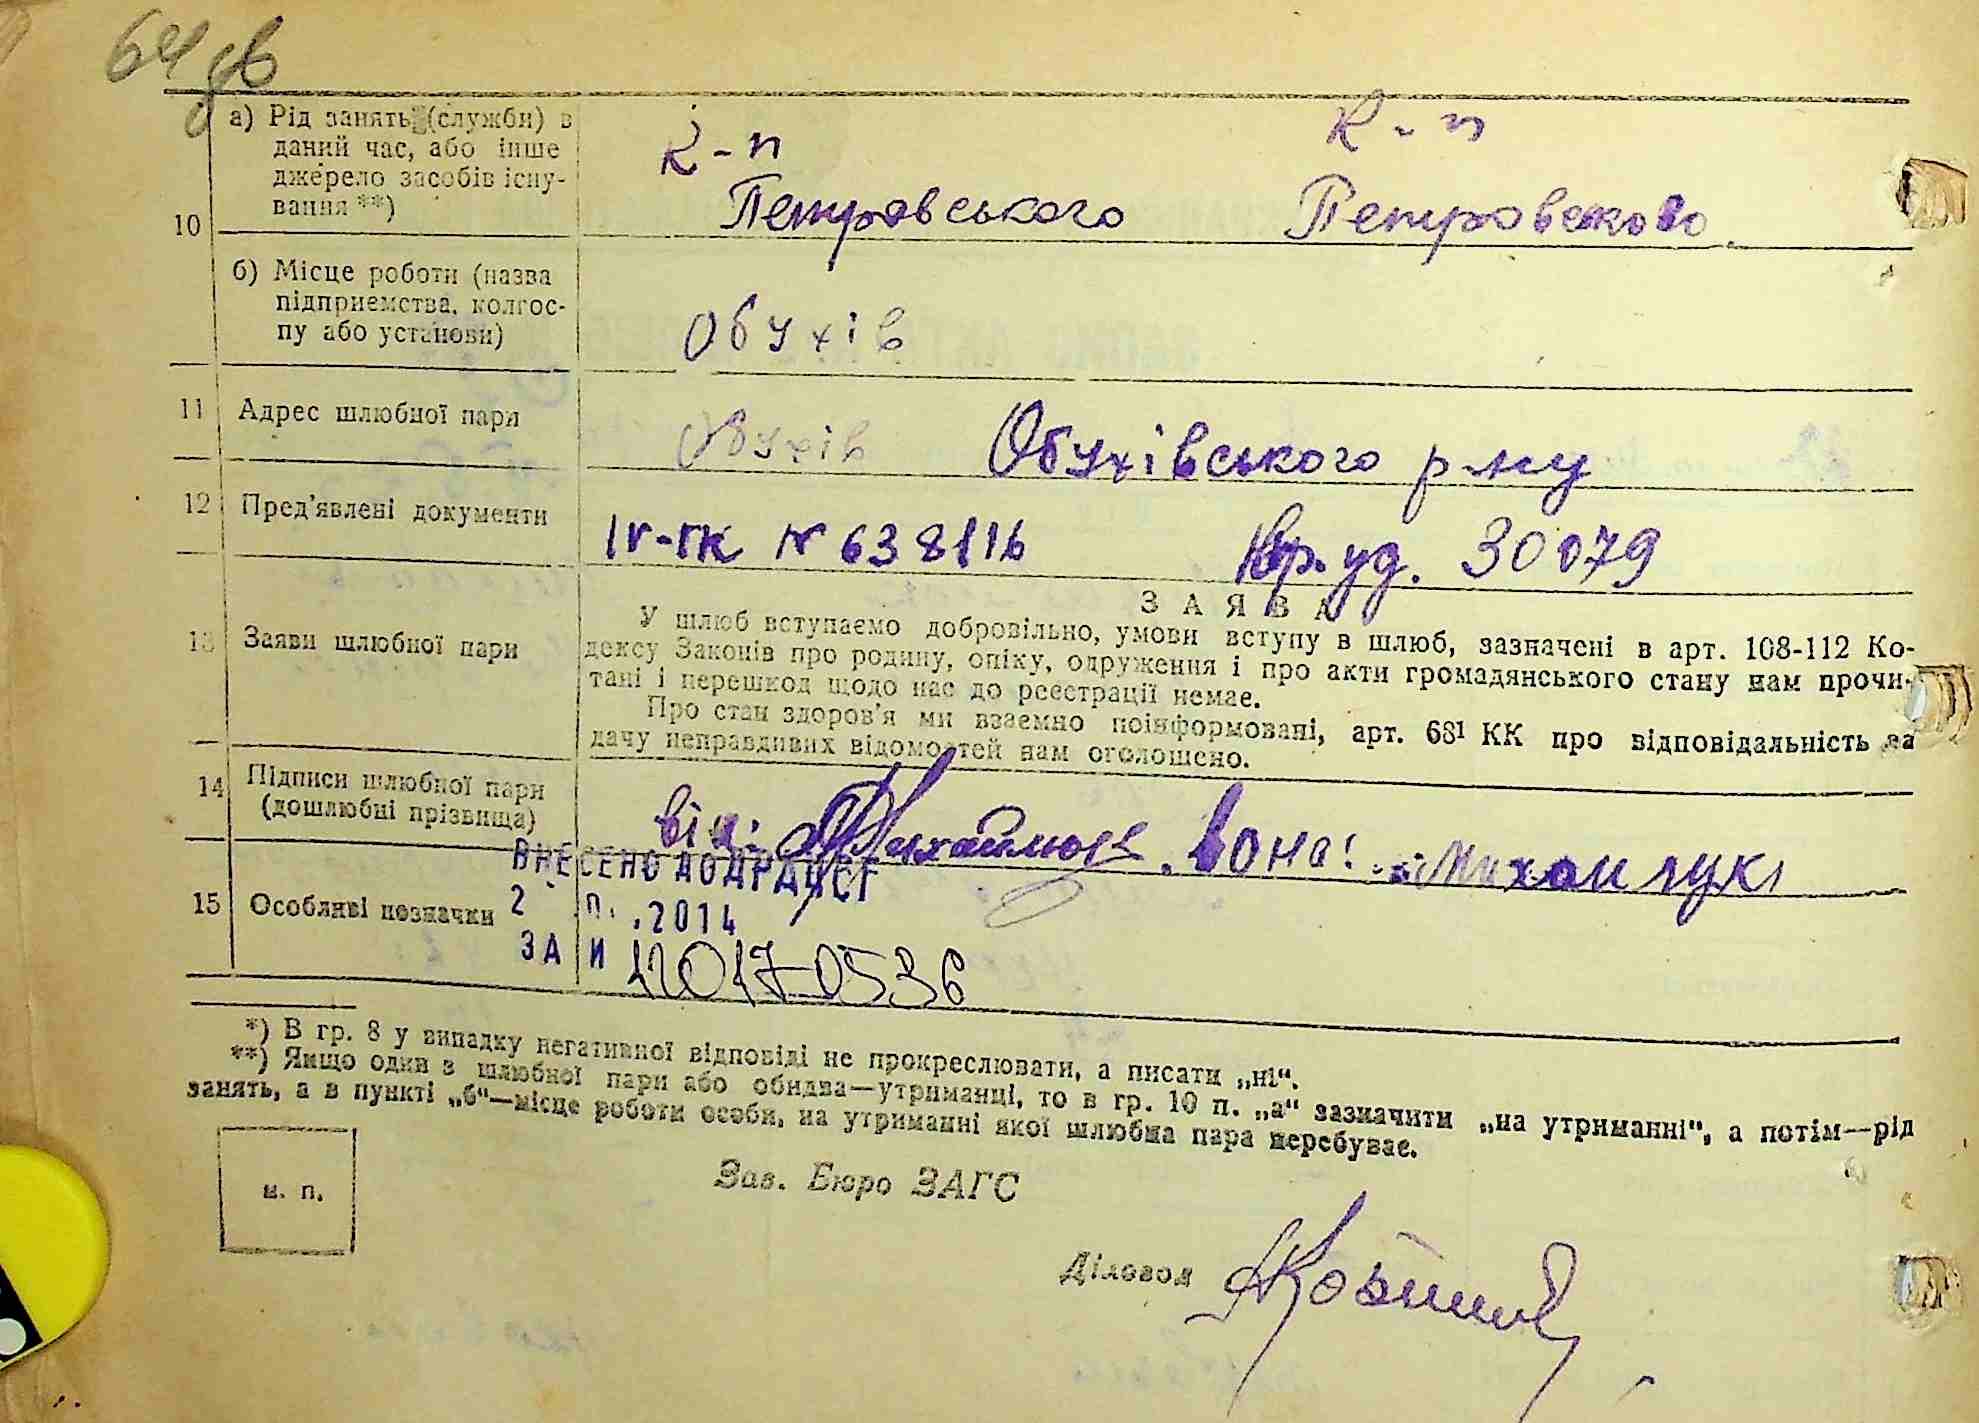 64 зв
а) Рід занять (служби) в
даний час, або інше
джерело засобів існу-
вання **)
К-п
Петровського
К-п
Петровсково
10
б) Місце роботи (назва
підприємства, колгос-
пу або установи)
Обухів
11 Адрес шлюбної пари
Обухів Обухівського р-ну
12 Пред’явлені документи
IV-ГК № 638116 Вр. уд. 30079
13 Заяви шлюбної пари
ЗАЯВА
У шлюб вступаємо добровільно, умови вступу в шлюб, зазначені в арт. 108-112 Ко-
дексу Законів про родину, опіку, одруження і про акти громадянського стану нам прочи-
тані і перешкод щодо нас до реєстрації немає.
Про стан здоров’я ми взаємно поінформовані, арт. 68¹ КК про відповідальність за
дачу неправдивих відомостей нам оголошено.
14 Підписи шлюбної пари
(дошлюбні прізвища)
він: Михайлюк. Вона: Михайлук
15 Особливі позначки
ВНЕСЕНО ДО ДРАЦСГ
2 .2014
ЗА И 120170536
*) В гр. 8 у випадку негативної відповіді не прокреслювати, а писати „ні“.
**) Якщо один з шлюбної пари або обидва—утриманці, то в гр. 10 п. „а“ зазначити „на утриманні“, а потім—рід
занять, а в пункті „б“—місце роботи особи, на утриманні якої шлюбна пара перебуває.
м. п.
Зав. Бюро ЗАГС
Діловод